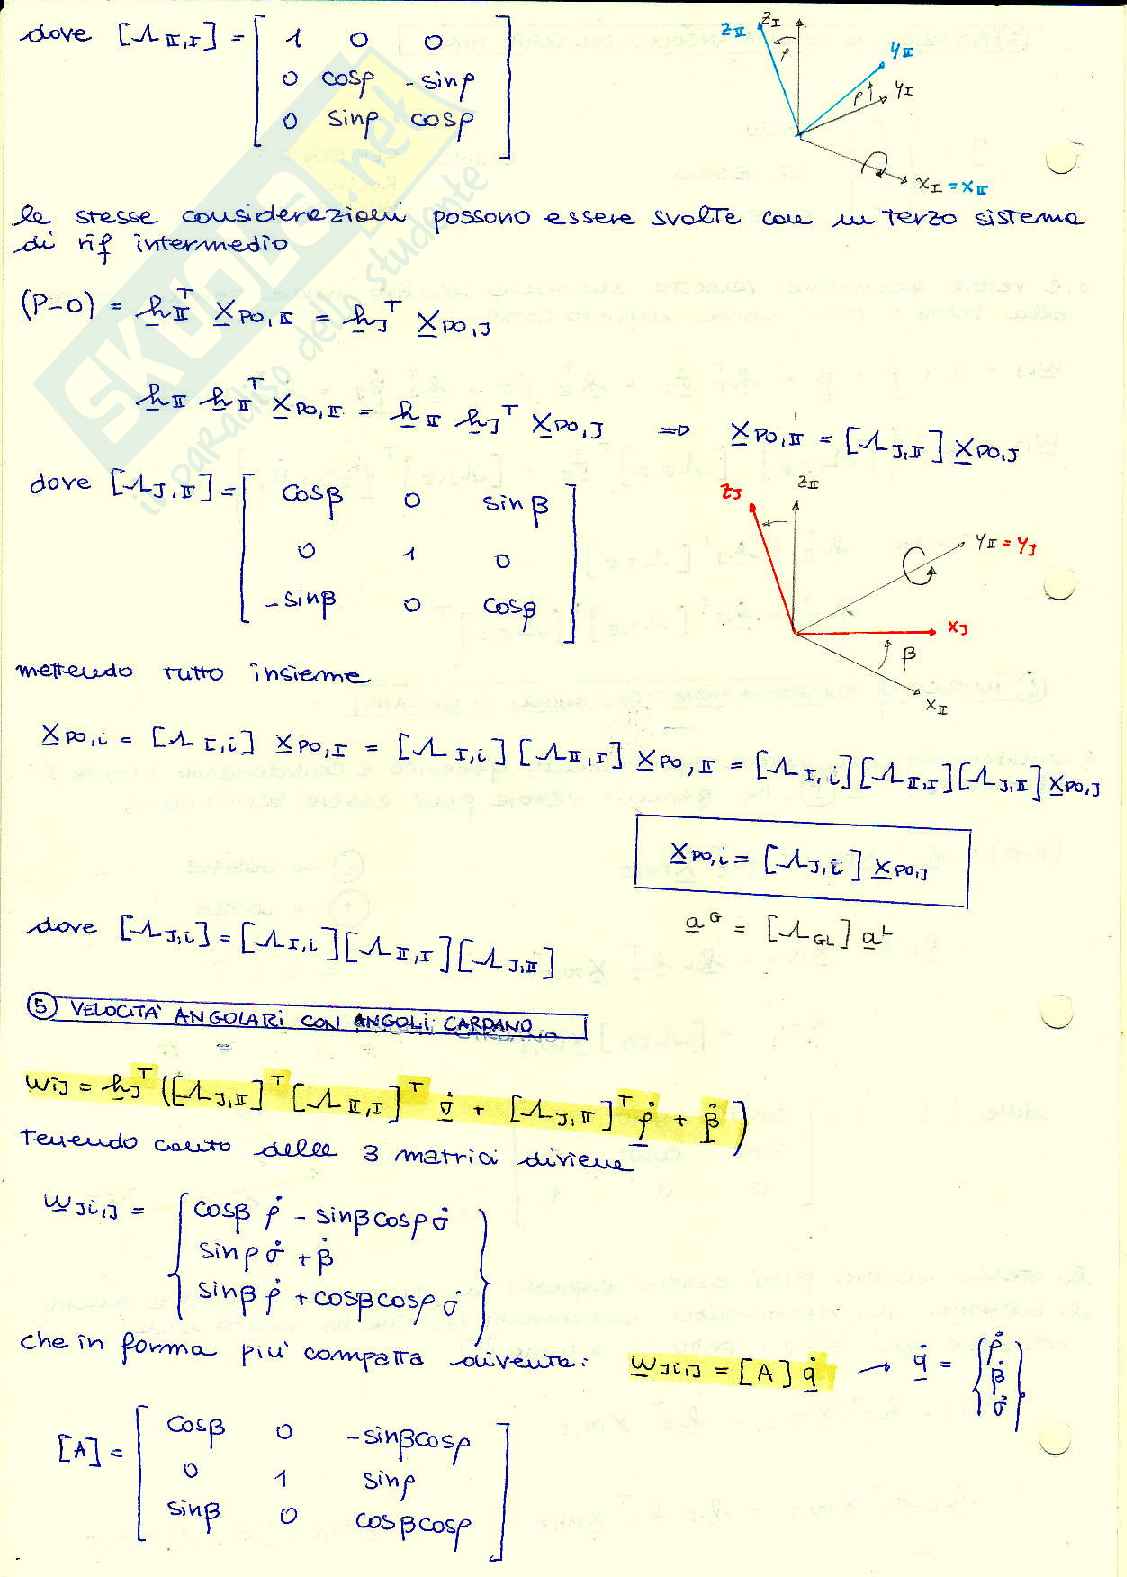 dove [Λ II,I] = [ 1 0 0
0 cosρ -sinρ
0 sinρ cosρ ]
zII zI yII yI ρ ρ xI = xII
le stesse considerazioni possono essere svolte con un terzo sistema
di rif intermedio
(P-O) = h II^T X PO,II = h J^T X PO,J
h II h II^T X PO,II = h II h J^T X PO,J ⇒ X PO,II = [Λ J,II] X PO,J
dove [Λ J,II] = [ cosβ 0 sinβ
0 1 0
-sinβ 0 cosβ ]
zJ zII yII = yJ xJ β xII
mettendo tutto insieme
X PO,i = [Λ I,i] X PO,I = [Λ I,i] [Λ II,I] X PO,II = [Λ I,i] [Λ II,I] [Λ J,II] X PO,J
X PO,i = [Λ J,i] X PO,J
a^G = [Λ GL] a^L
dove [Λ J,i] = [Λ I,i] [Λ II,I] [Λ J,II]
⑤ VELOCITA' ANGOLARI CON ANGOLI CARDANO
ωiJ = h J^T ([Λ J,II]^T [Λ II,I]^T σ̇ + [Λ J,II]^T ρ̇ + β̇)
Tenendo conto delle 3 matrici diviene
ω Ji,J = { cosβ ρ̇ - sinβcosρ σ̇
sinρ σ̇ + β̇
sinβ ρ̇ + cosβcosρ σ̇ }
che in forma piu' compatta diventa: ω Ji,J = [A] q̇ → q̇ = { ρ̇
β̇
σ̇ }
[A] = [ cosβ 0 -sinβcosρ
0 1 sinρ
sinβ 0 cosβcosρ ]
SKUOLA.net
il paradiso dello studente